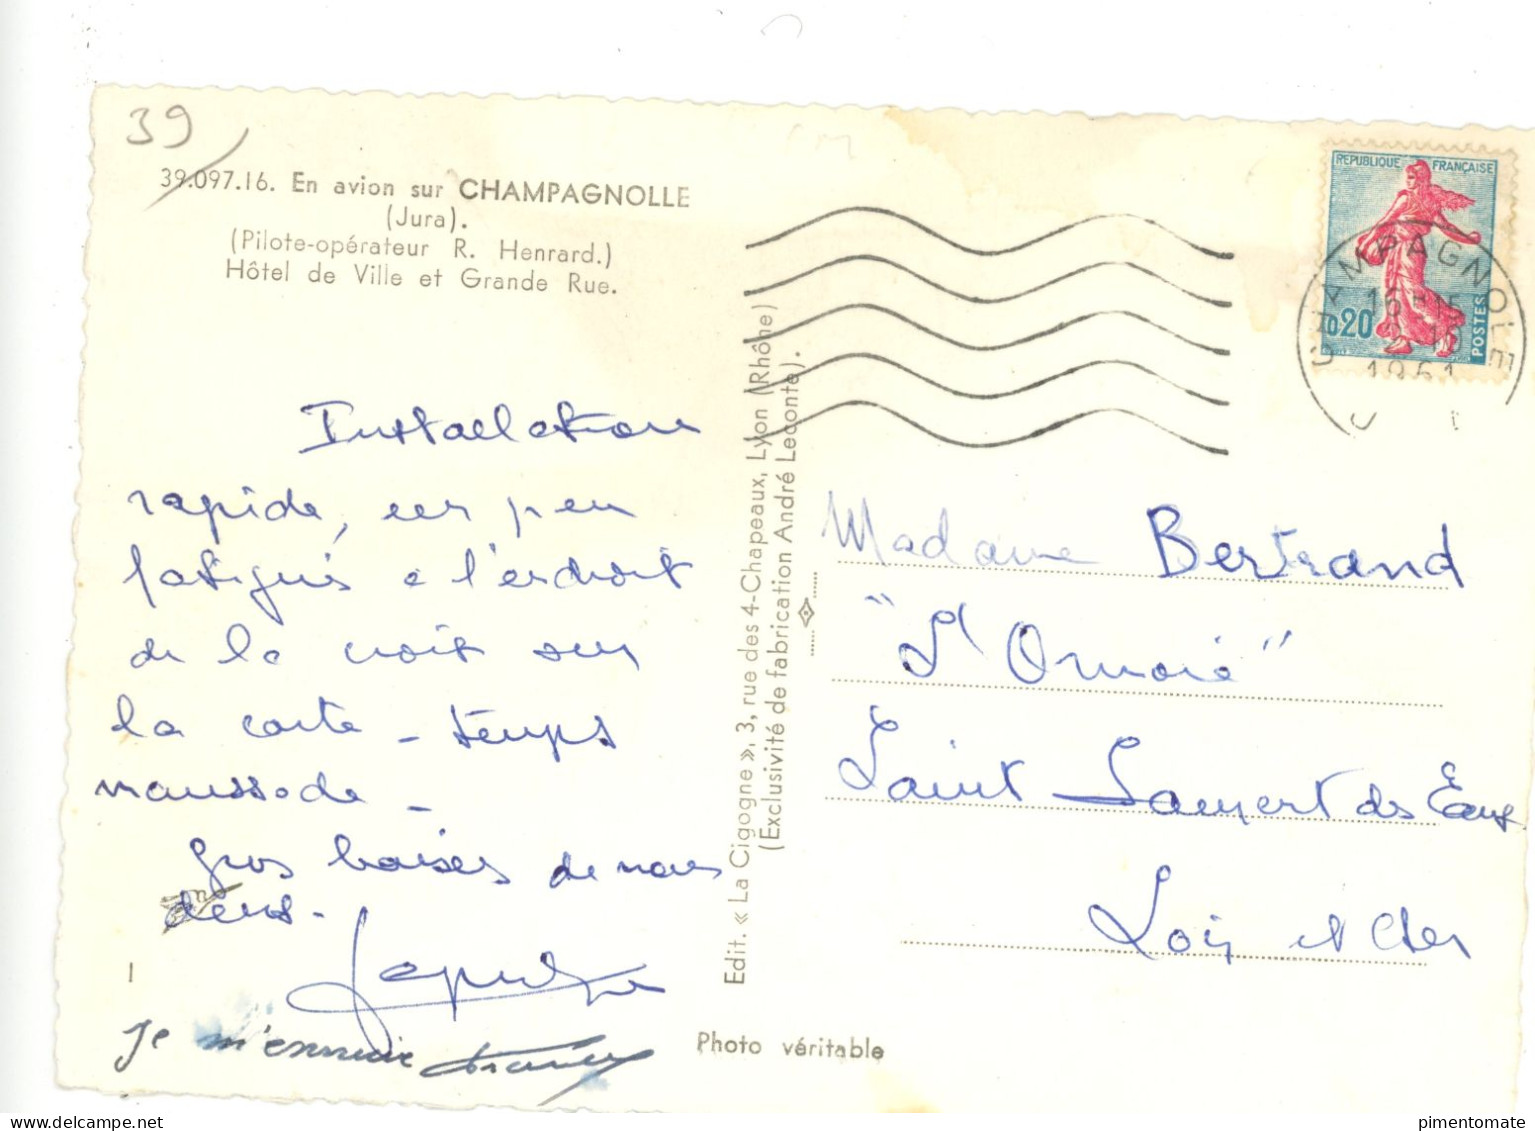 39
39.097.16. En avion sur CHAMPAGNOLLE
(Jura).
(Pilote-opérateur R. Henrard.)
Hôtel de Ville et Grande Rue.
Installation
rapide, un peu
fatigués à l'endroit
de la croix sur
la carte - temps
maussade -
Gros baisers de nous
deux -
Je m'ennuie
Edit. « La Cigogne », 3, rue des 4-Chapeaux, Lyon (Rhône)
(Exclusivité de fabrication André Leconte).
Photo véritable
REPUBLIQUE FRANÇAISE
0,20
POSTES
CHAMPAGNOLE
16 H 15
1961
Madame Bertrand
Saint Laurent des Eaux
Loir et Cher
delcampe.net
pimentomate